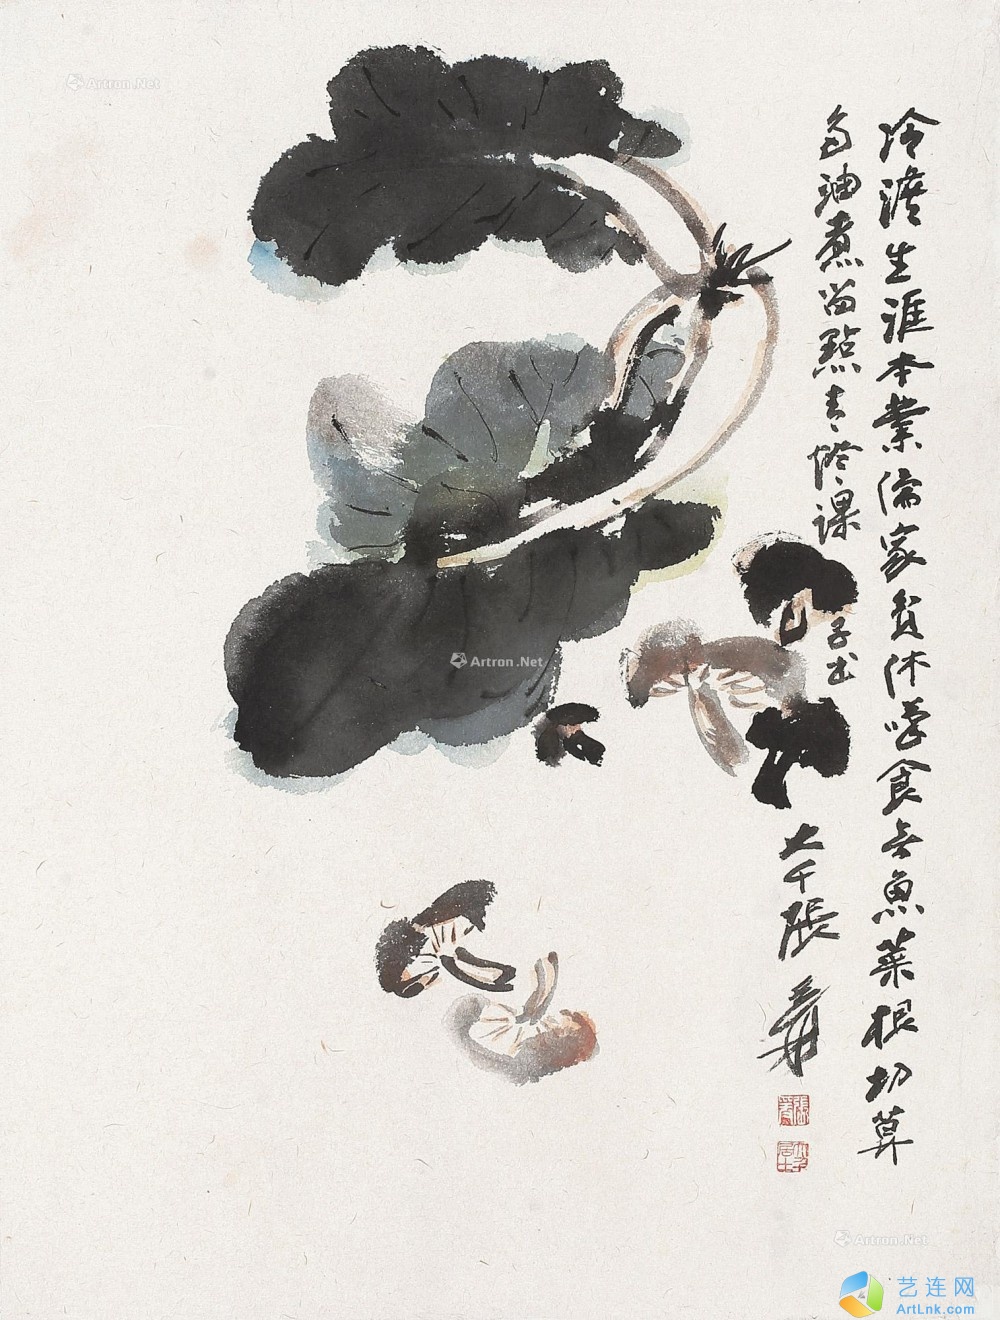 冷澹生涯本業儒家貧休嘆食無魚菜根切莫
多油煮留點青燈課子書
大千張爰
張爰
大千居士
Artron.Net
Artron.Net
Artron.Net
艺连网
ArtLnk.com